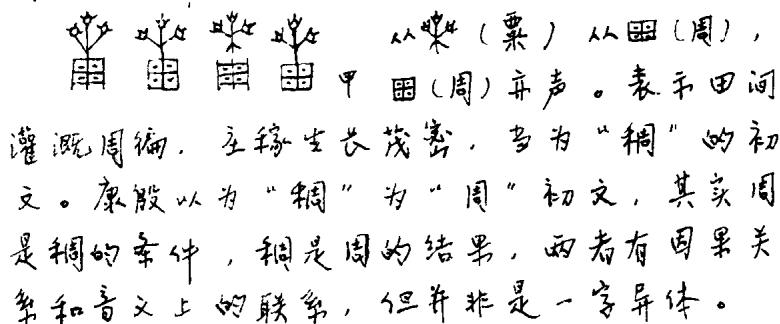 从（粟）从田（周），
甲 田（周）亦声。表示田间
灌溉周徧，庄稼生长茂密，当为“稠”的初
文。康殷以为“稠”为“周”初文，其实周
是稠的条件，稠是周的结果，两者有因果关
系和音义上的联系，但并非是一字异体。